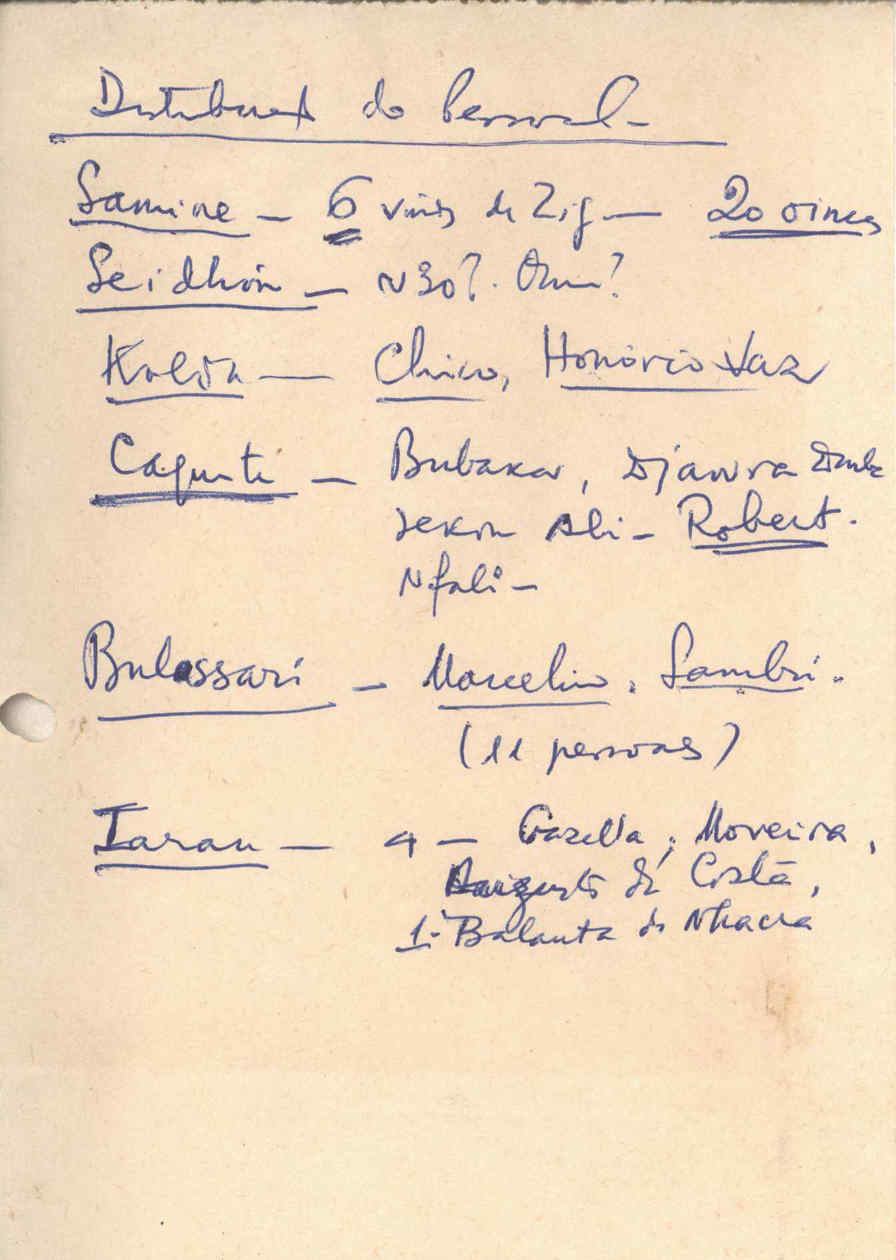 Distribuição do Pessoal -
Samine - 6 vindos de Zig - 20 
Seidhón - 30?
Kolda - Chico, Honório Vaz
- Bubakar, Djawra
Sekou Ali - Robert.
Nfali -
Bulossari - Marcelino, Sambú.
(11 pessoas)
Iaran - 4 - Gazella, Moreira,
Augusto da Costa,
1 - Balanta de Nhacra